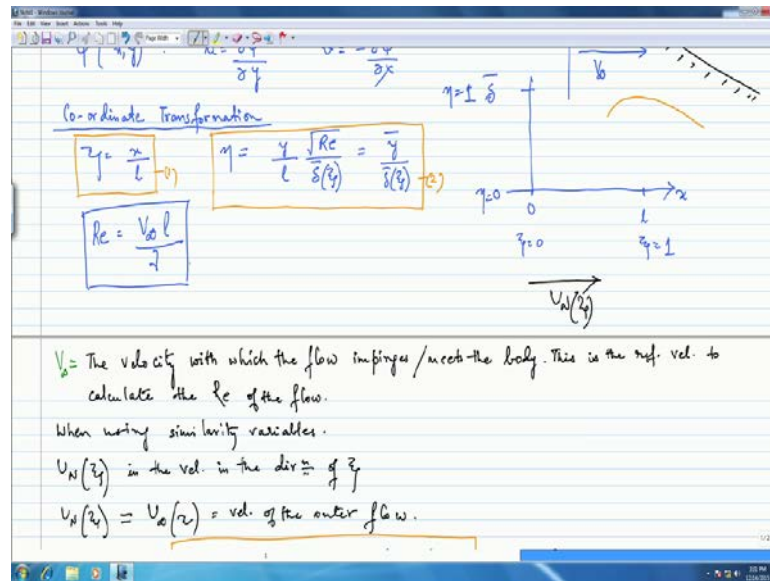 Note1 - Windows Journal
File Edit View Insert Actions Tools Help
Page Width
ψ(x,y) : u = ∂ψ/∂y v = -∂ψ/∂x
V∞
η=1 δ̄
Co-ordinate Transformation
ξ = x/l -(1)
η = y/l √Re/δ̄(ξ) = ȳ/δ̄(ξ) -(2)
η=0
0 l x
ξ=0 ξ=1
Re = V∞ l/ν
U_N(ξ)
V∞ = The velocity with which the flow impinges/meets the body. This is the ref. vel. to
calculate the Re of the flow.
When using similarity variables.
U_N(ξ) is the vel. in the dirn of ξ
U_N(ξ) = U∞(x) = vel. of the outer flow.